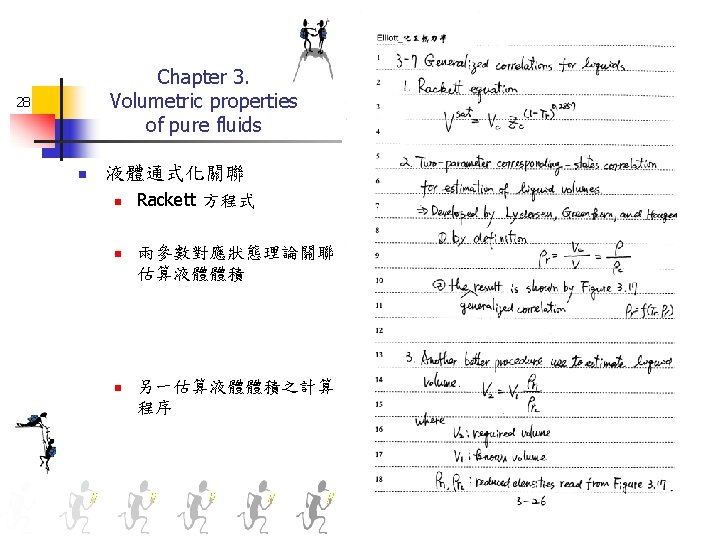 28
Chapter 3.
Volumetric properties
of pure fluids
液體通式化關聯
Rackett 方程式
兩參數對應狀態理論關聯
估算液體體積
另一估算液體體積之計算
程序
Elliott_化工熱力學
1 3-7 Generalized correlations for liquids
2 1. Rackett equation
3 V^sat = Vc Zc^(1-Tr)^0.2857
4
5 2. Two-parameter corresponding-states correlation
6 for estimation of liquid volumes
7 ⇒ Developed by Lydersen, Greenkorn, and Hougen
8 ① by definition
9 ρr = Vc/V = ρ/ρc
10 ② the result is shown by Figure 3.17
11 generalized correlation ρr = f(Tr Pr)
12
13 3. Another better procedure use to estimate liquid
14 volume. V2 = V1 ρr1/ρr2
15 where
16 V2 : required volume
17 V1 : known volume
18 ρr1, ρr2 : reduced densities read from Figure 3.17.
3-26